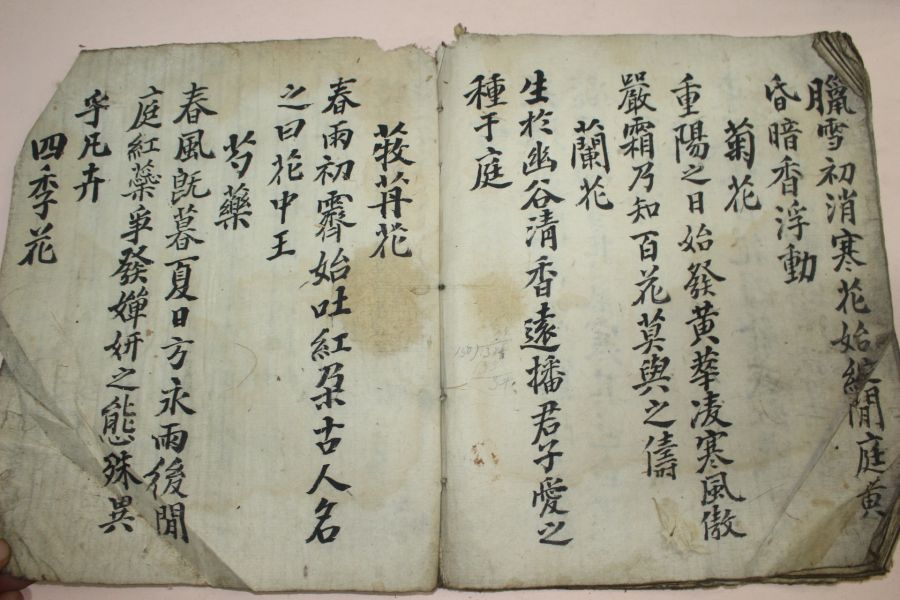 臘雪初消寒花始綻閒庭黄
昏暗香浮動
菊花
重陽之日始發黄華凌寒風傲
嚴霜乃知百花莫與之儔
蘭花
生於幽谷清香遠播君子愛之
種于庭
牧丹花
春雨初霽始吐紅朶古人名
之曰花中王
芍藥
春風旣暮夏日方永雨後閒
庭紅蘂爭發嬋姸之態殊異
乎凡卉
四季花